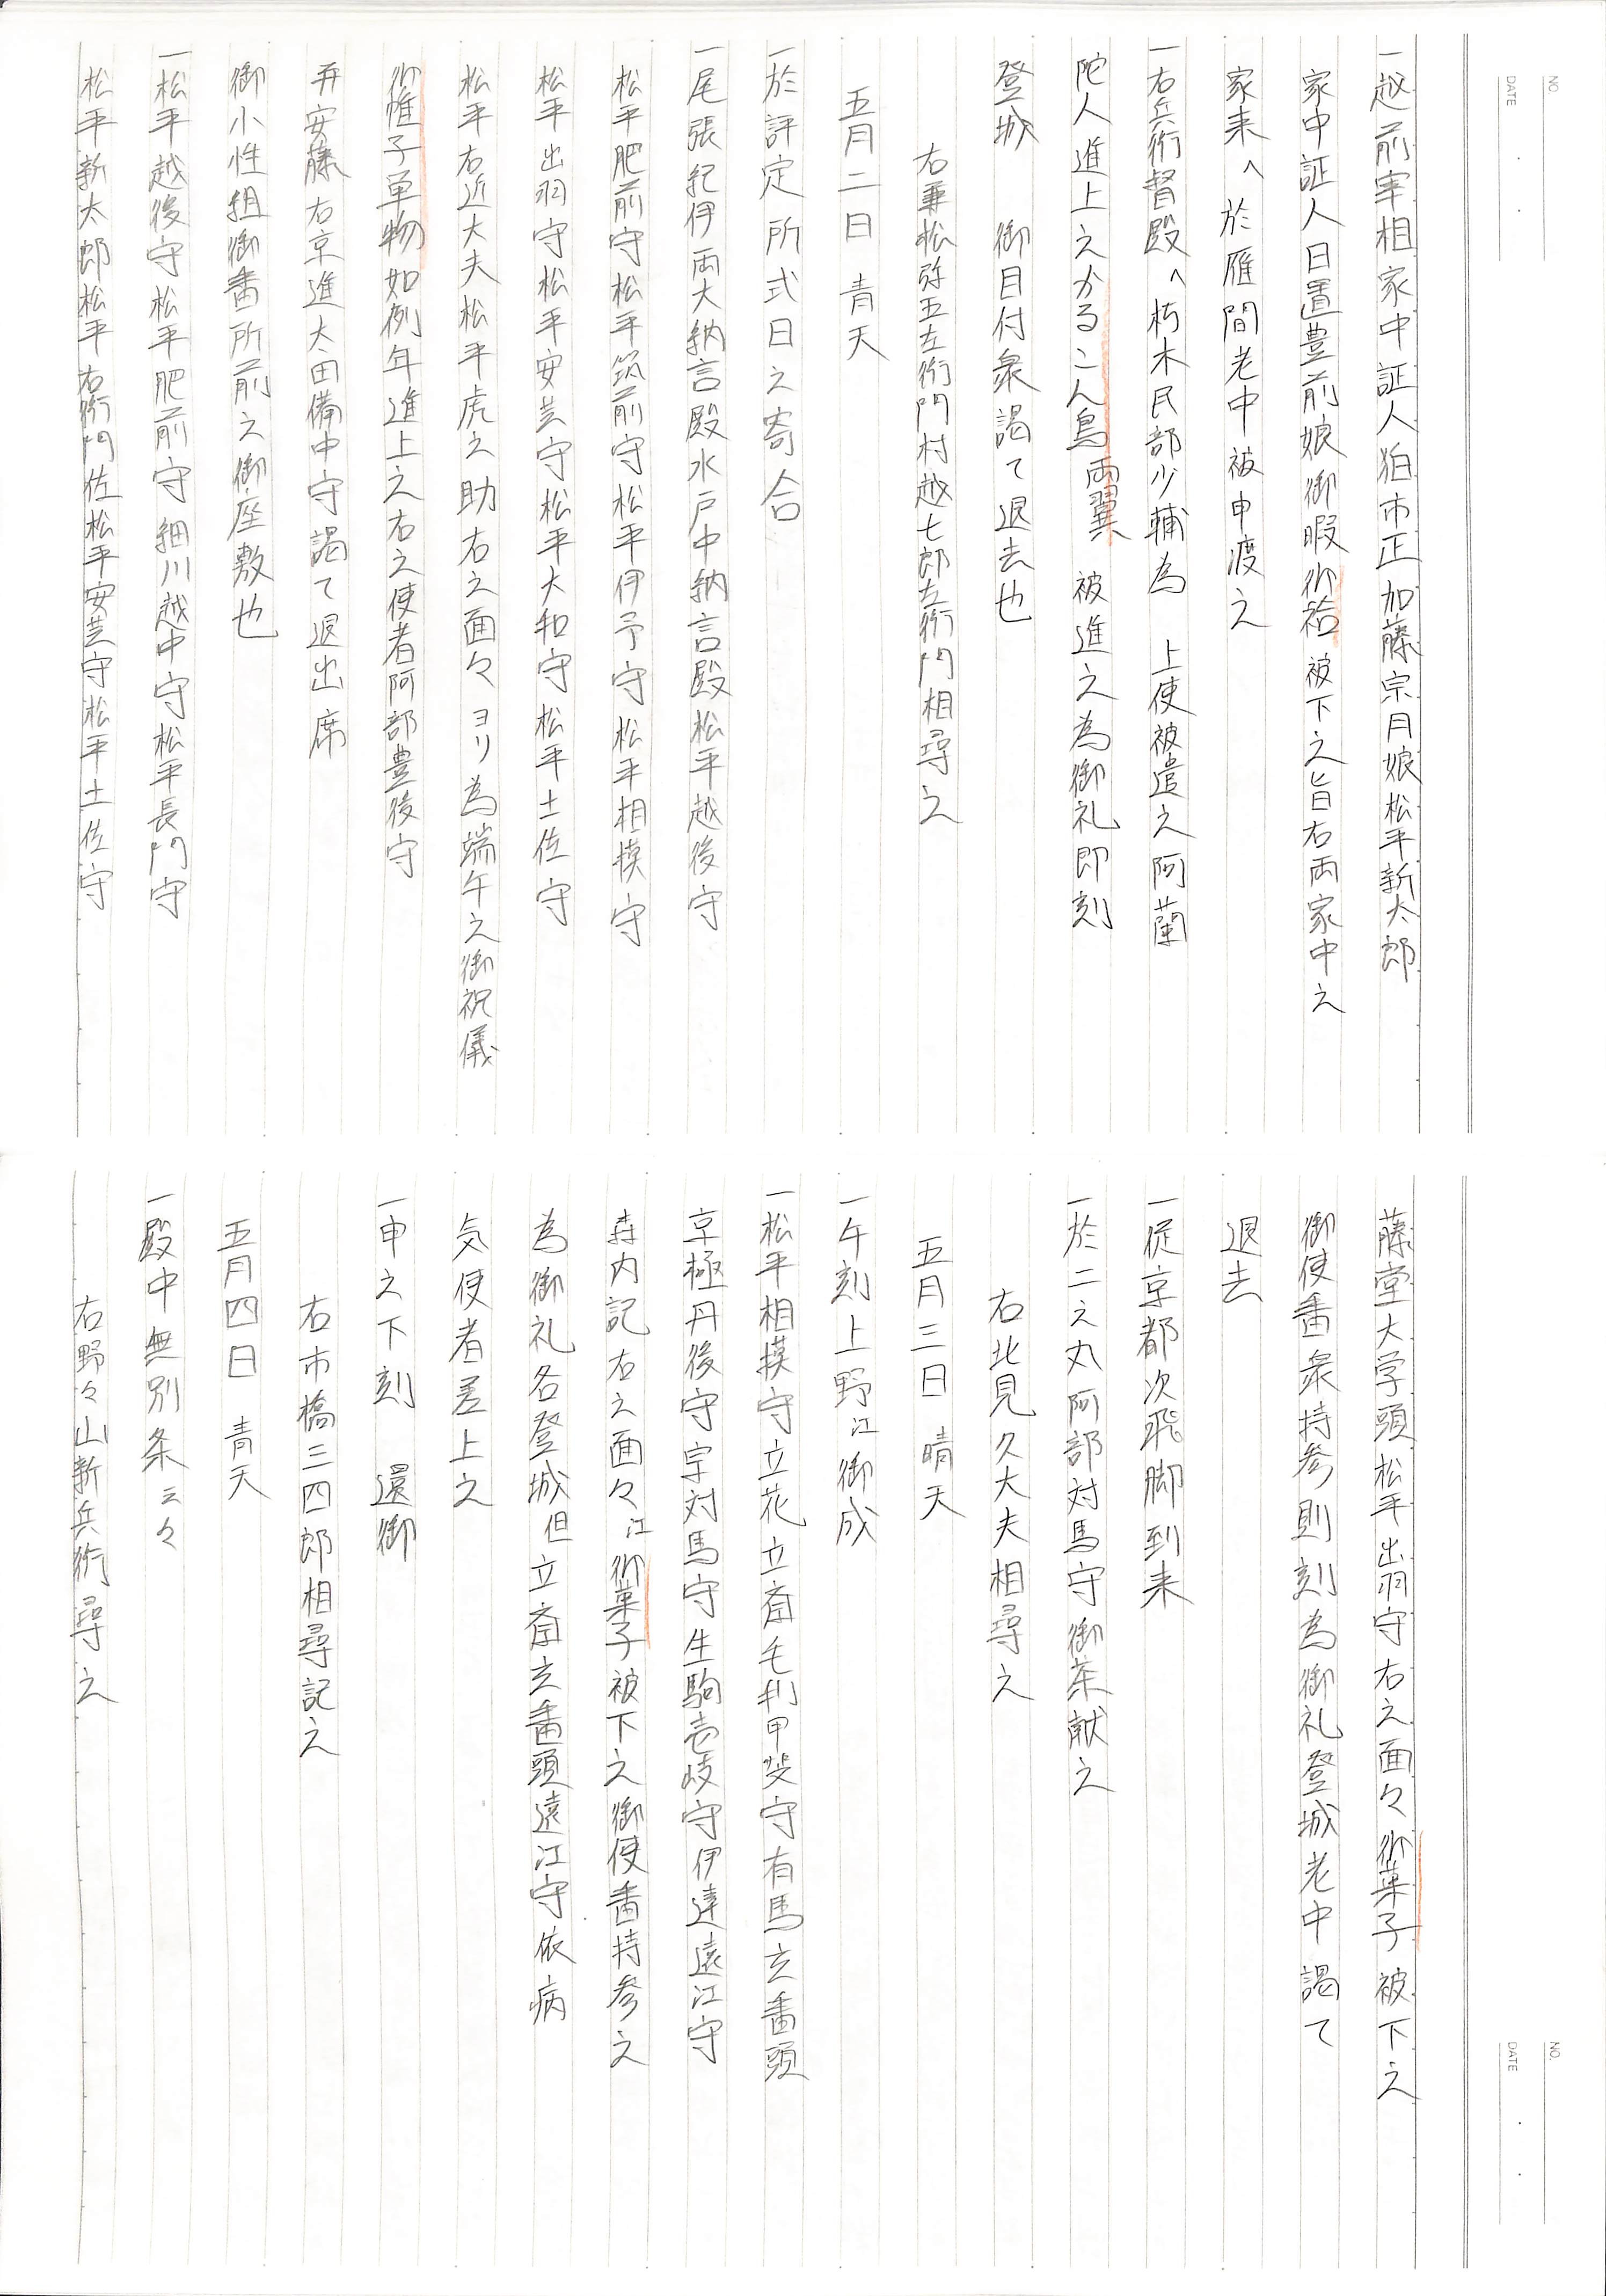 NO.
DATE
一越前宰相家中証人狛市正加藤宗月娘松平新太郎
家中証人日置豊前娘御暇御袷被下之旨右両家中之
家来へ於雁間老中被申渡之
一右兵衛督殿へ朽木民部少輔為 上使被遣之阿蘭
陀人進上之かるこん鳥両翼 被進之為御礼即刻
登城 御目付衆謁て退去也
右兼松弥五左衛門村越七郎左衛門相尋之
五月二日 青天
一於評定所式日之寄合
一尾張紀伊両大納言殿水戸中納言殿松平越後守
松平肥前守松平筑前守松平伊予守松平相摸守
松平出羽守松平安芸守松平大和守松平土佐守
松平右近大夫松平虎之助右之面々ヨリ為端午之御祝儀
御帷子単物如例年進上之右之使者阿部豊後守
并安藤右京進太田備中守謁て退出席
御小性組御番所前之御座敷也
一松平越後守松平肥前守細川越中守松平長門守
松平新太郎松平右衛門佐松平安芸守松平土佐守
NO.
DATE
藤堂大学頭松平出羽守右之面々御菓子被下之
御使番衆持参則刻為御礼登城老中謁て
退去
一従京都次飛脚到来
一於二之丸阿部対馬守御茶献之
右北見久大夫相尋之
五月三日 晴天
一午刻上野江御成
一松平相摸守立花立斎毛利甲斐守有馬玄番頭
京極丹後守宗対馬守生駒壱岐守伊達遠江守
森内記右之面々江御菓子被下之御使番持参之
為御礼各登城但立斎玄番頭遠江守依病
気使者差上之
一申之下刻 還御
右市橋三四郎相尋記之
五月四日 青天
一殿中無別条云々
右野々山新兵衛尋之